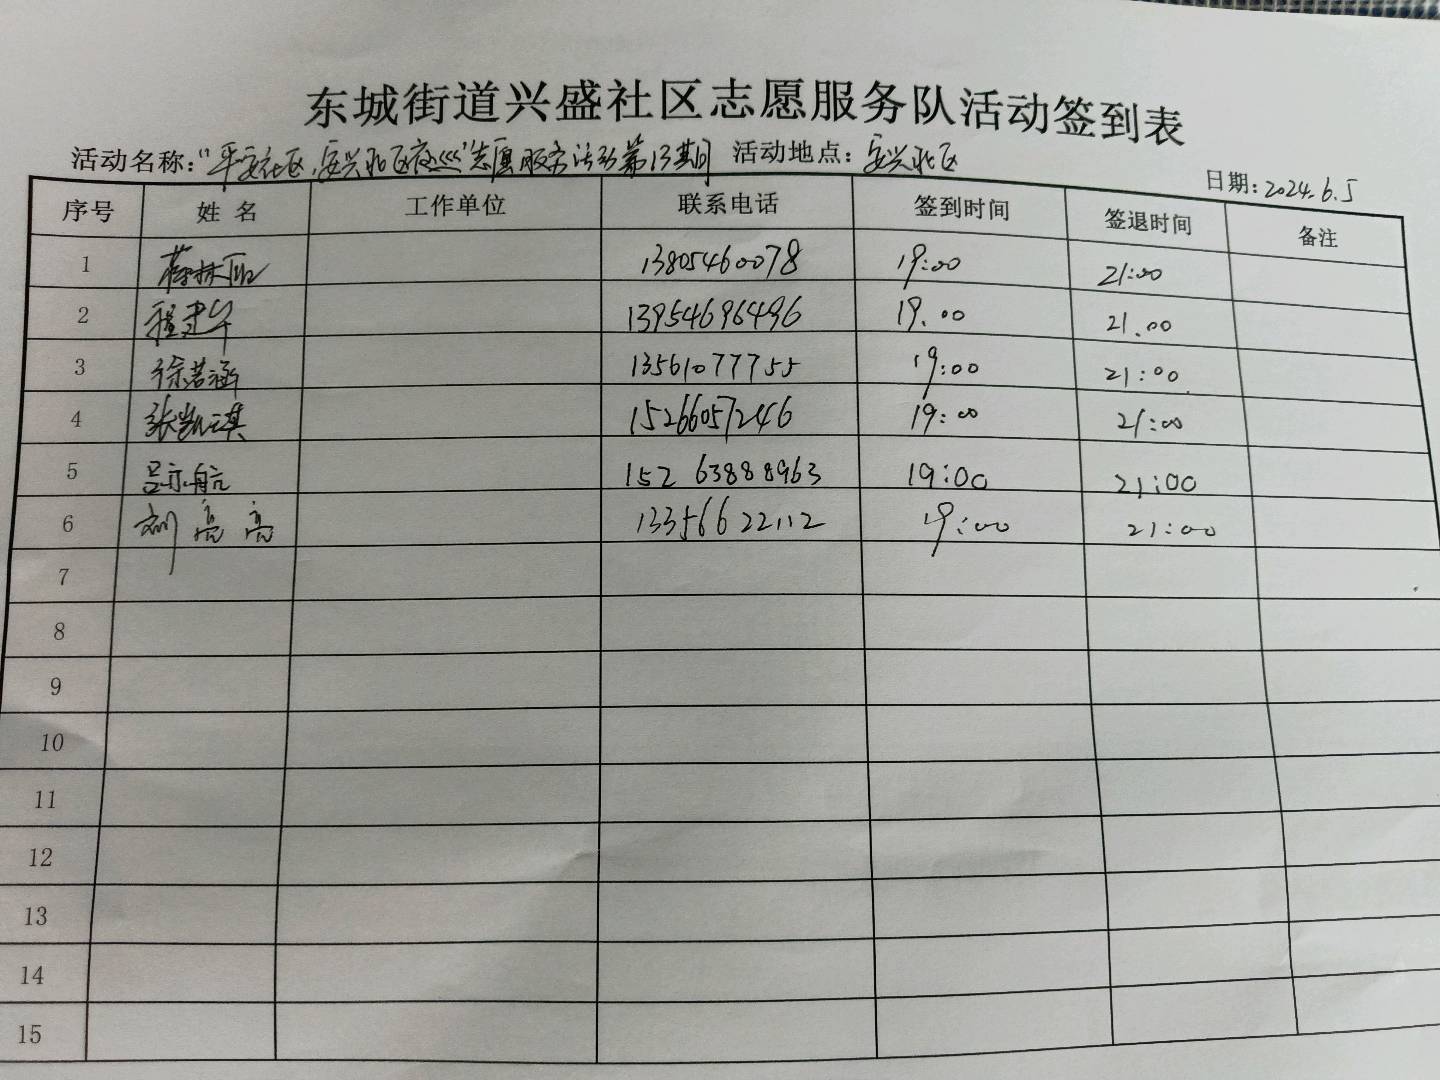 东城街道兴盛社区志愿服务队活动签到表
活动名称：“平安社区，安兴北区夜巡”志愿服务活动第13期 活动地点：安兴北区 日期：2024.6.5
序号 姓名 工作单位 联系电话 签到时间 签退时间 备注
1 13805460078 19:00 21:00
2 程建华 13954696496 19.00 21.00
3 徐若涵 13561077755 19:00 21:00
4 张凯琪 15266057246 19:00 21:00
5 吕亦航 152 63888963 19:00 21:00
6 刘亮亮 13356622112 19:00 21:00
7
8
9
10
11
12
13
14
15